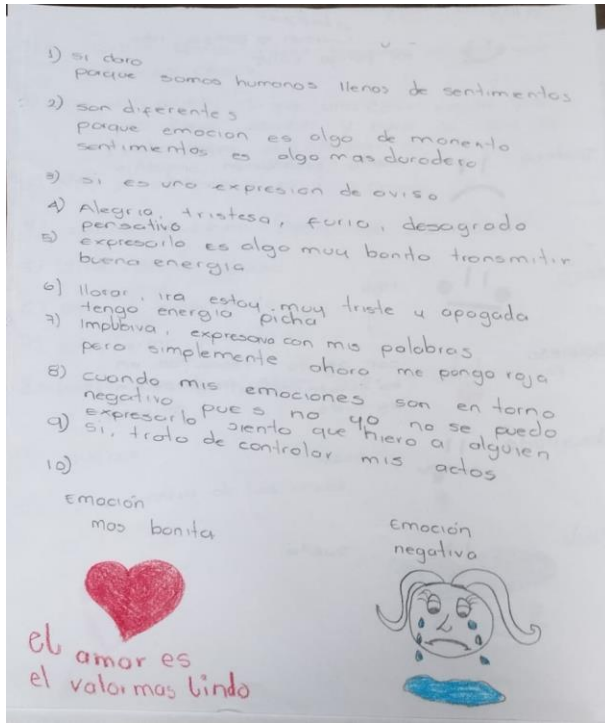 1) si claro
porque somos humanos llenos de sentimentos
2) son diferentes
porque emocion es algo de monento
sentimentos es algo mas duradero
3) si es una expresion de aviso
4) Alegria, tristesa, furia, desagrado
pensativo
5) expresarlo es algo muy bonito transmitir
buena energia
6) llorar, ira estoy muy triste y apagada
tengo energia picha
7) Impulsiva, expresava con mis palabras
pero simplemente ahora me pongo roja
8) cuando mis emociones son en torno
negativo pues no yo no se puedo
expresarlo siento que hiero a alguien
9) si, trato de controlar mis actos
10)
Emoción
mas bonita
Emoción
negativa
el amor es
el valor mas lindo